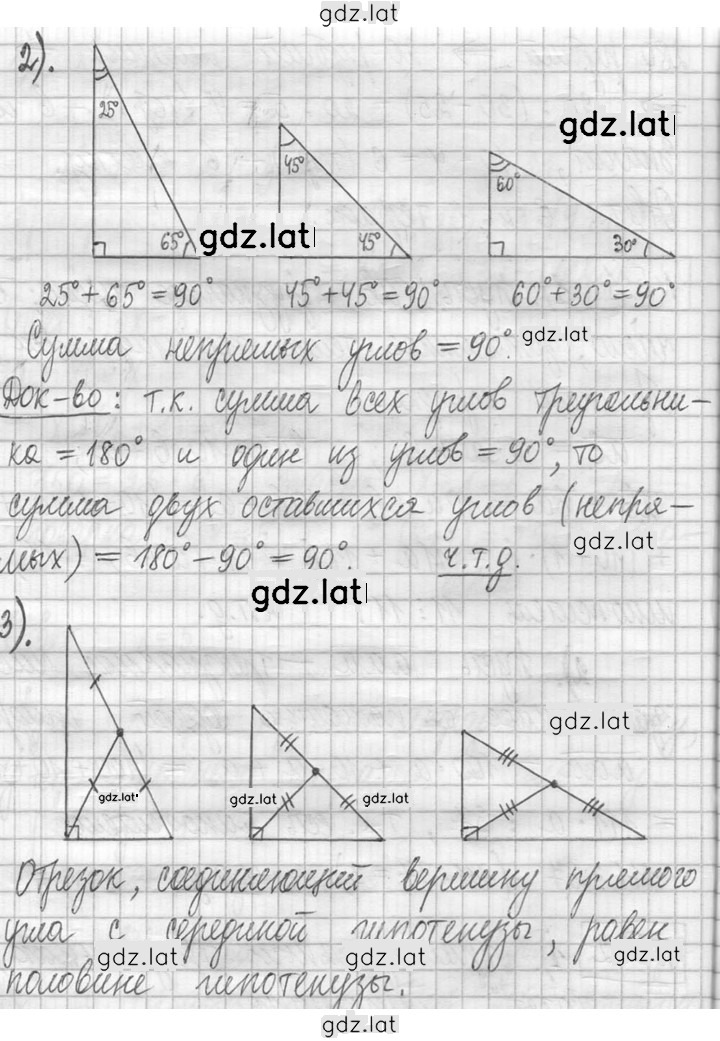 gdz.lat
2).
25°
45°
gdz.lat
60°
65°
gdz.lat
45°
30°
25°+65°=90° 45°+45°=90° 60°+30°=90°
Сумма непрямых углов = 90°. gdz.lat
Док-во: т.к. сумма всех углов треугольни-
ка = 180° и один из углов = 90°, то
сумма двух оставшихся углов (непря-
мых) = 180°-90°=90°. ч.т.д. gdz.lat
gdz.lat
3).
gdz.lat
gdz.lat gdz.lat gdz.lat
Отрезок, соединяющий вершину прямого
угла с серединой гипотенузы, равен
gdz.lat gdz.lat gdz.lat
половине гипотенузы.
gdz.lat